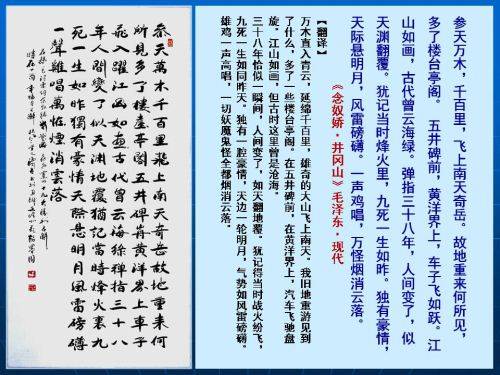 参天万木，千百里，飞上南天奇岳。故地重来何所见，
多了楼台亭阁。 五井碑前，黄洋界上，车子飞如跃。江
山如画，古代曾云海绿。弹指三十八年，人间变了，似
天渊翻覆。犹记当时烽火里，九死一生如昨。独有豪情，
天际悬明月，风雷磅礴。一声鸡唱，万怪烟消云落。
《念奴娇·井冈山》毛泽东·现代
【翻译】
万木直入青云，延绵千百里，雄奇的大山飞上南天。我旧地重游见到
了什么，多了一些楼台亭阁。在五井碑前，在黄洋界上，汽车飞驰盘
旋。江山如画，但古时这里曾是沧海。
三十八年恰似一瞬间，人间变了，如天翻地覆。犹记得当时战火纷飞，
九死一生如同昨天。独有一腔豪情，天边一轮明月，气势如风雷磅礴。
雄鸡一声高唱，一切妖魔鬼怪全都烟消云落。
参天萬木千百里飛上南天奇岳故地重来何
所見多了樓臺亭阁五井碑前黄洋界上車子
飛如躍江山如畫古代曾雲海绿弹指三十八
年人間變了似天渊翻覆猶記當時烽火裏九
死一生如昨獨有豪情天際悬明月風雷磅礴
一聲雞唱萬怪煙消雲落